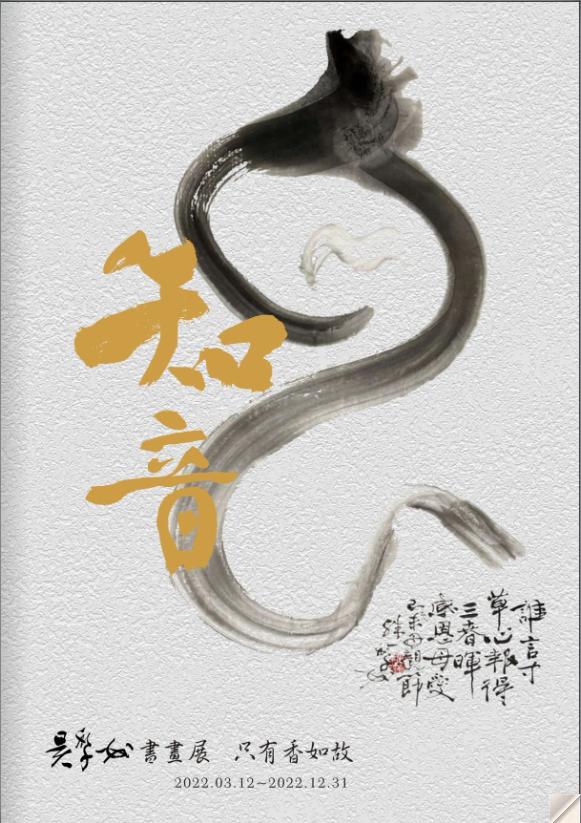 知音
誰言寸
草心報得
三春暉
感恩母愛
書畫展 只有香如故
2022.03.12~2022.12.31